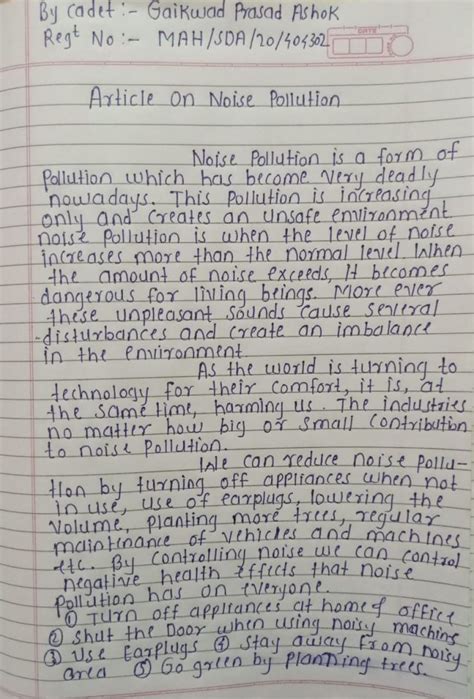 By Cadet:- Gaikwad Prasad Ashok
Regt No:- MAH/SDA/20/404302
DATE
Article On Noise Pollution
Noise Pollution is a form of
Pollution which has become very deadly
nowadays. This Pollution is increasing
only and creates an unsafe environment
noise Pollution is when the level of noise
increases more than the normal level. When
the amount of noise exceeds, It becomes
dangerous for living beings. More ever
these unpleasant sounds cause several
disturbances and create an imbalance
in the environment.
As the world is turning to
technology for their comfort, it is, at
the same time, harming us. The industries
no matter how big or small contribution
to noise Pollution.
We can reduce noise Pollu-
tion by turning off appliances when not
in use, use of earplugs, lowering the
volume, planting more trees, regular
maintinance of vehicles and machines
etc. By controlling noise we can control
negative health effects that noise
Pollution has on everyone.
① Turn off appliances at home & office
② Shut the Door when using noisy machins
③ Use Earplugs ④ Stay away from noisy
area ⑤ Go green by planning trees.